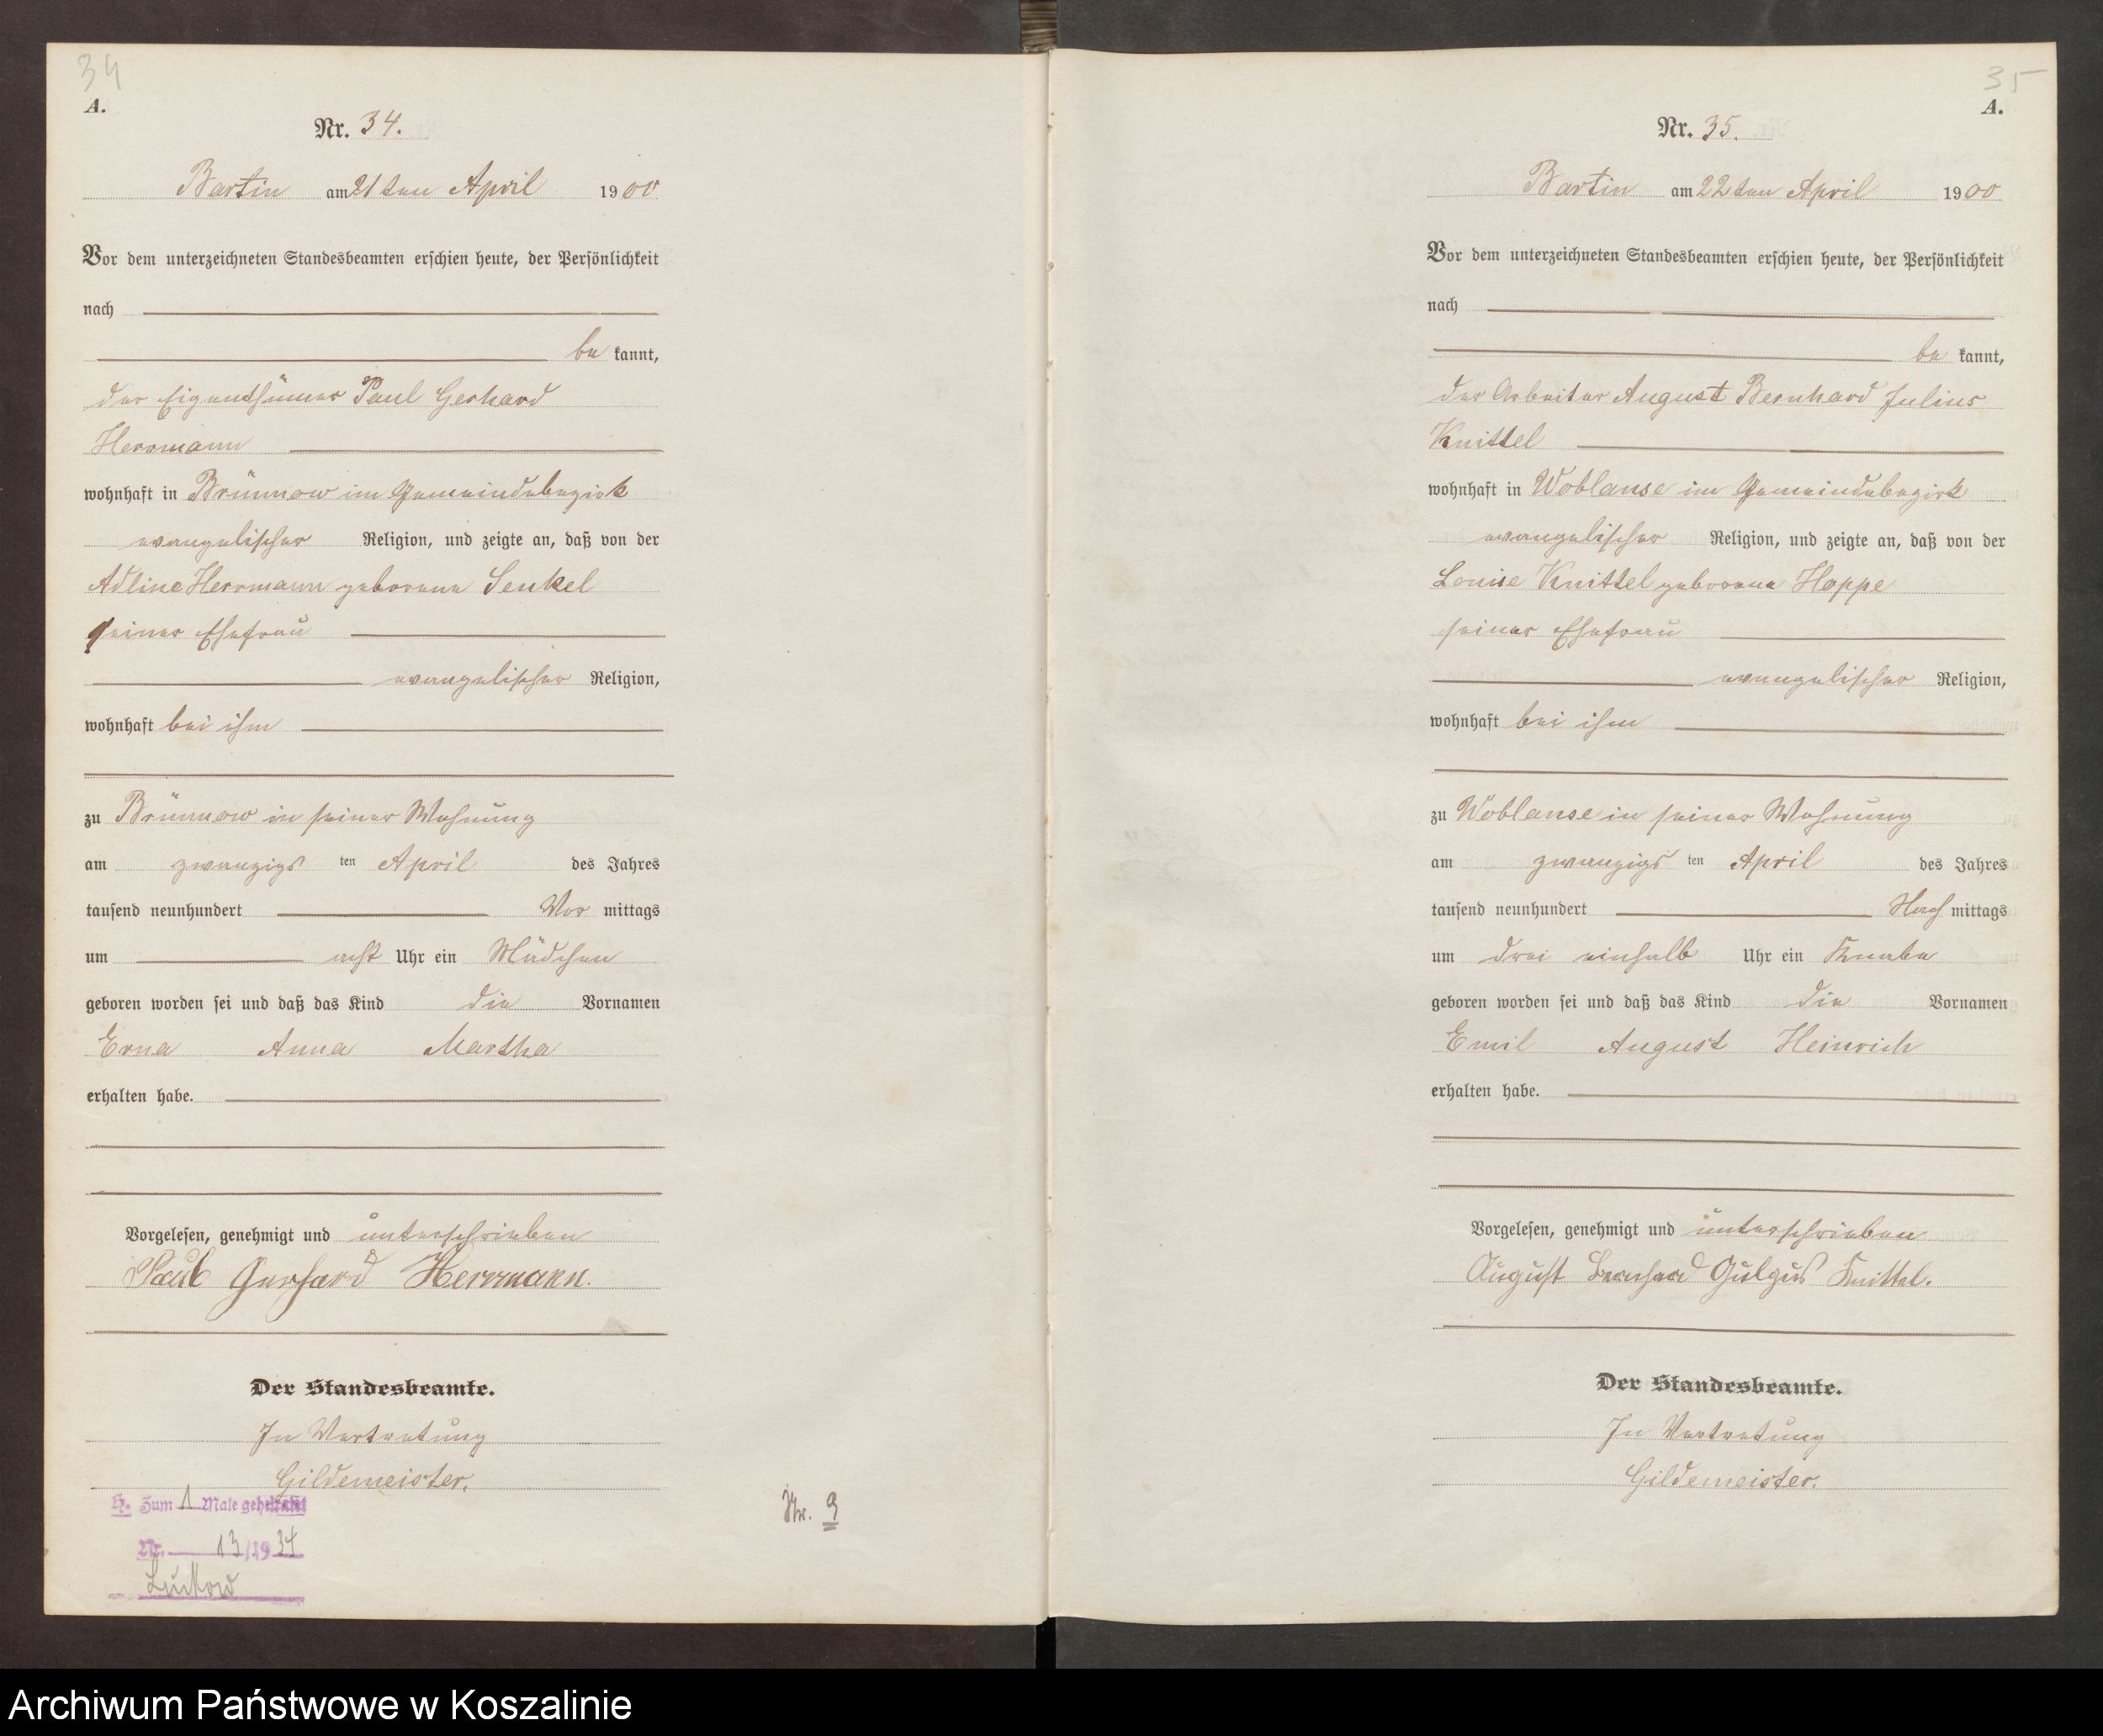 34
A.
Nr. 34.
Bartin am 21ten April 1900
Vor dem unterzeichneten Standesbeamten erschien heute, der Persönlichkeit
nach
be kannt,
der Eigenthümer Paul Gerhard
Herrmann
wohnhaft in Brünnow im Gemeindebezirk
evangelischer Religion, und zeigte an, daß von der
Adline Herrmann geborene Senkel
seiner Ehefrau
evangelischer Religion,
wohnhaft bei ihm
zu Brünnow in seiner Wohnung
am zwanzigs ten April des Jahres
tausend neunhundert Vor mittags
um acht Uhr ein Mädchen
geboren worden sei und daß das Kind die Vornamen
Erna Anna Martha
erhalten habe.
Vorgelesen, genehmigt und unterschrieben
Paul Gerhard Herrmann.
Der Standesbeamte.
In Vertretung
Gildemeister.
H. Zum 1 Male geheiratet
Nr. 13/1934
Nr. 9
35
A.
Nr. 35.
Bartin am 22ten April 1900
Vor dem unterzeichneten Standesbeamten erschien heute, der Persönlichkeit
nach
be kannt,
der Arbeiter August Bernhard Julius
Knittel
wohnhaft in Woblanse im Gemeindebezirk
evangelischer Religion, und zeigte an, daß von der
Louise Knittel geborene Hoppe
seiner Ehefrau
evangelischer Religion,
wohnhaft bei ihm
zu Woblanse in seiner Wohnung
am zwanzigs ten April des Jahres
tausend neunhundert Nach mittags
um drei einhalb Uhr ein Knabe
geboren worden sei und daß das Kind die Vornamen
Emil August Heinrich
erhalten habe.
Vorgelesen, genehmigt und unterschrieben
August Bernhard Gulgus Knittel.
Der Standesbeamte.
In Vertretung
Gildemeister.
Archiwum Państwowe w Koszalinie